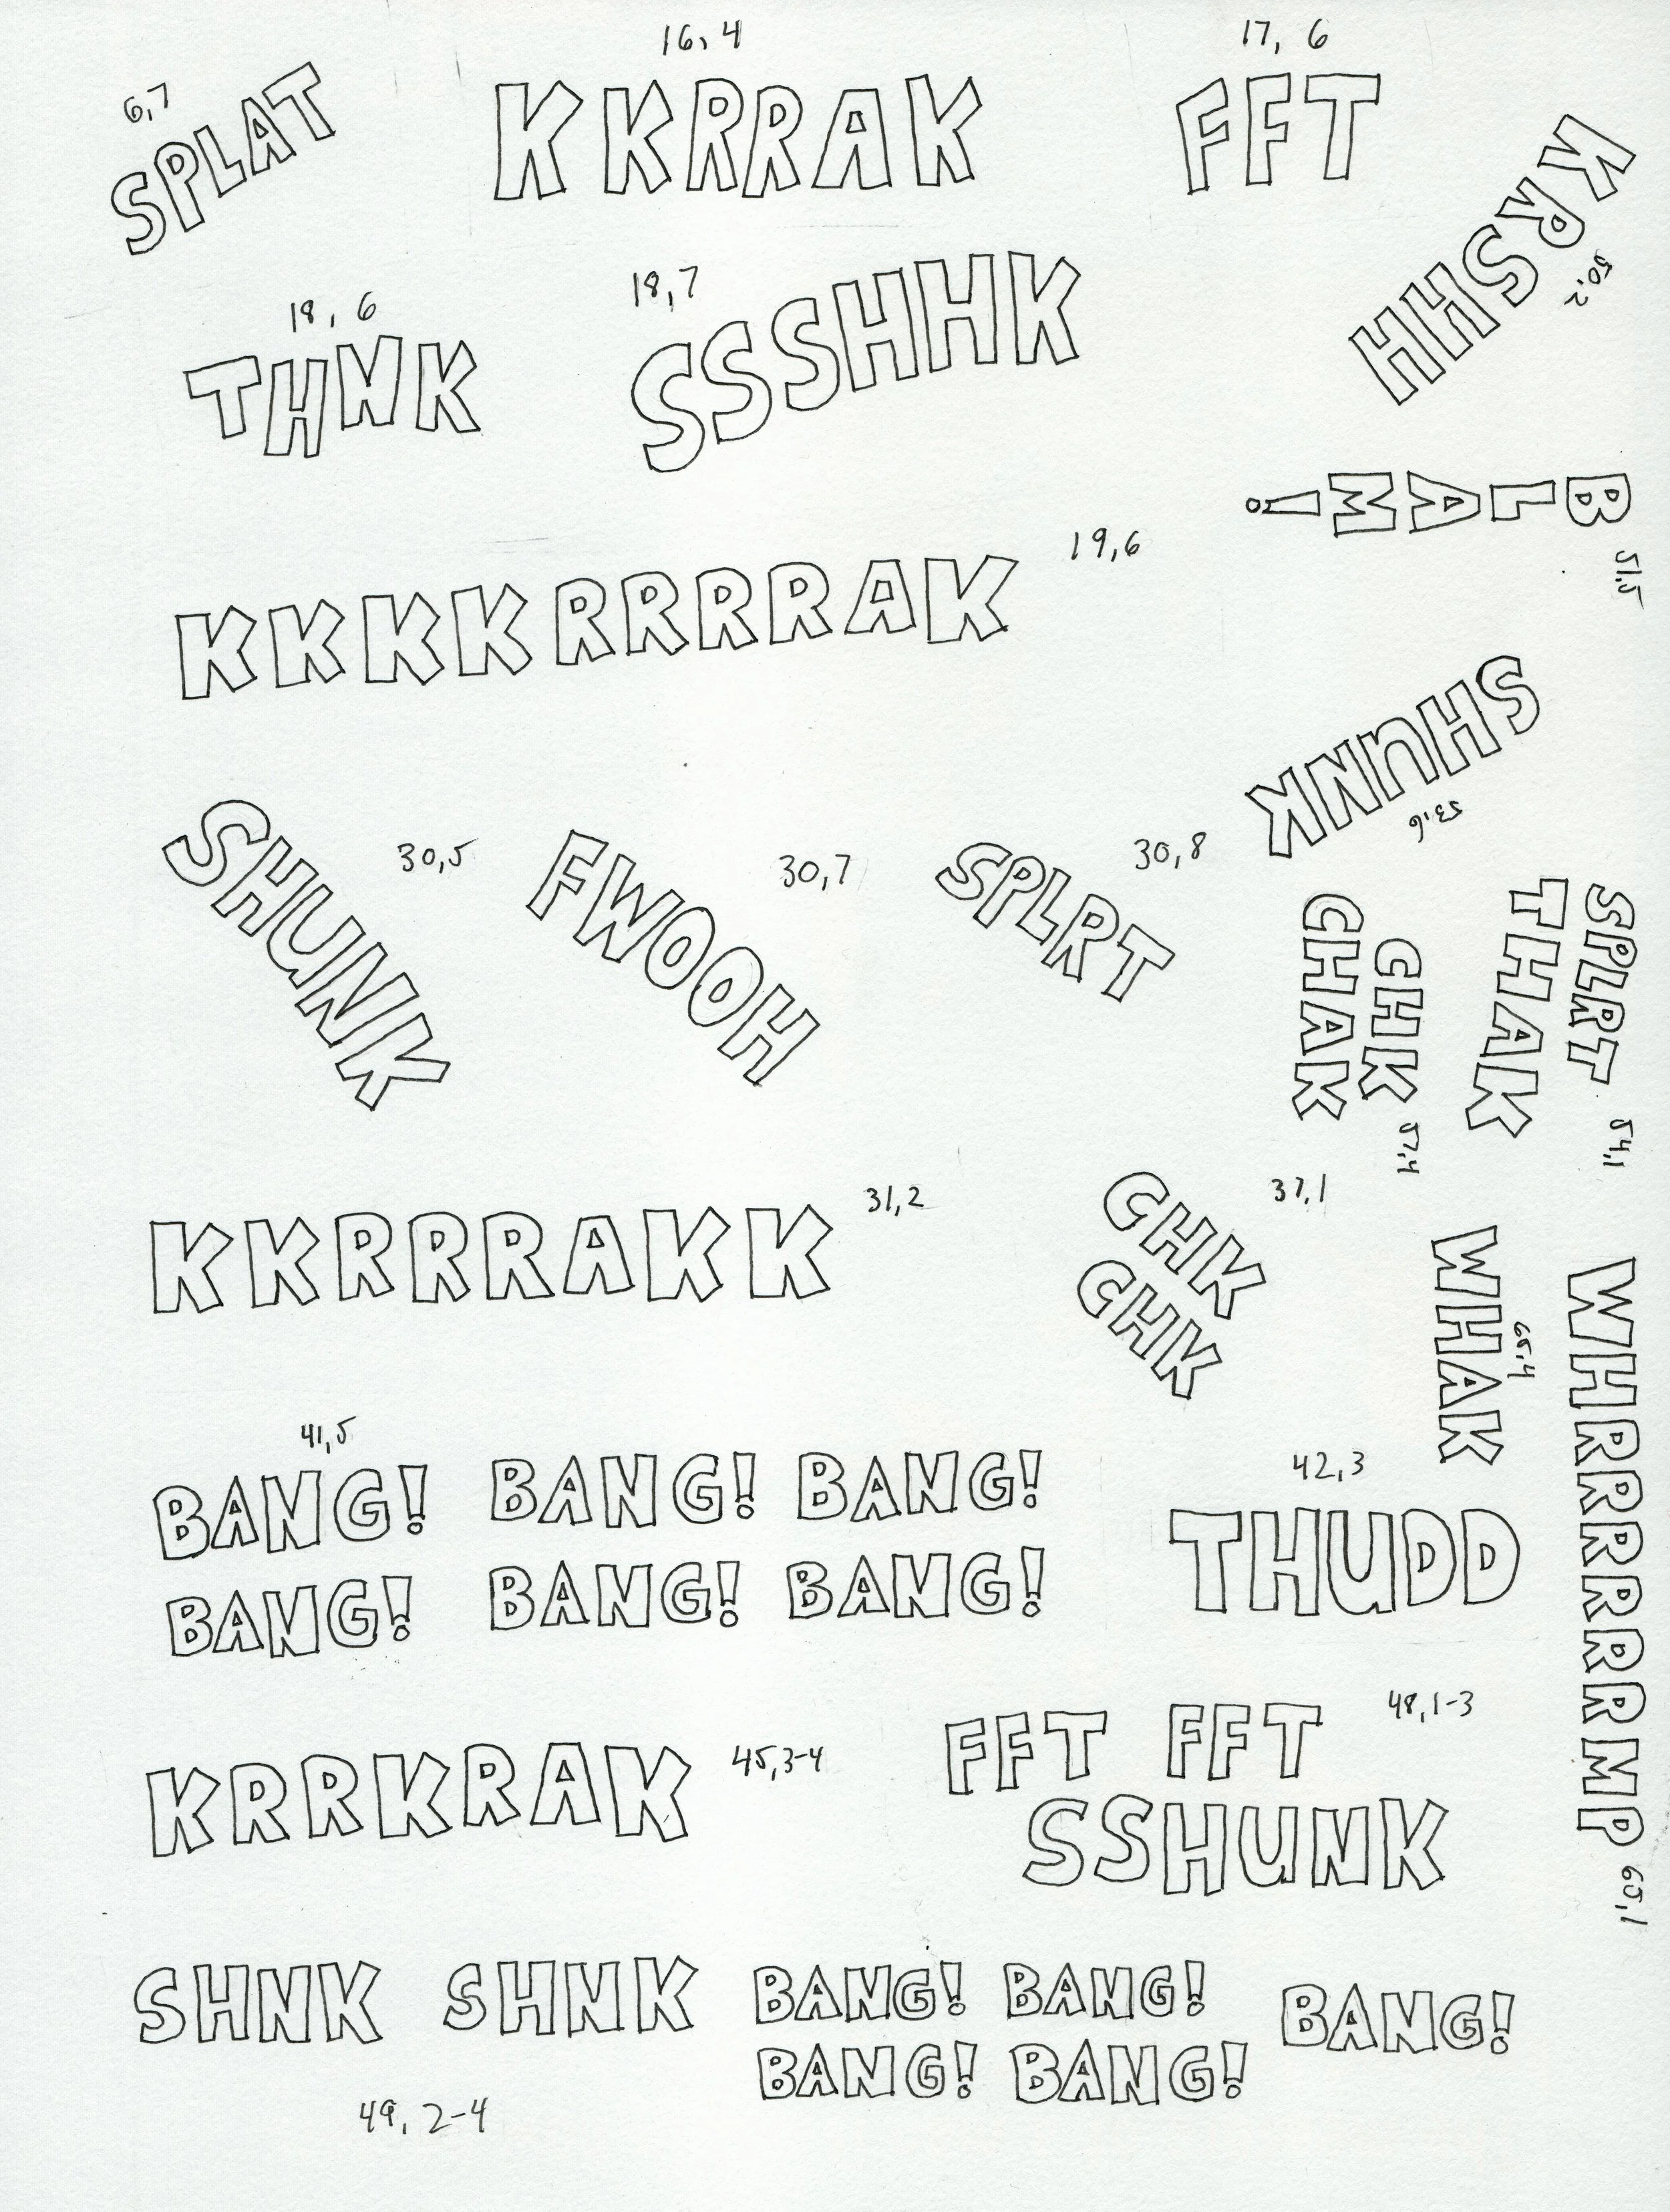 6,7
SPLAT
16,4
KKRRAK
17,6
FFT
KRSHH
50,2
18,6
THNK
18,7
SSSHHK
BLAM!
51,5
KKKKRRRRAK
19,6
SHUNK
53,6
SHUNK
30,5
FWOOH
30,7
SPLRT
30,8
CHK
CHAK
57,4
SPLRT
THAK
54,1
KKRRRAKK
31,2
CHK
CHK
37,1
WHAK
65,4
WHRRRRRRRMP
65,1
41,5
BANG! BANG! BANG!
BANG! BANG! BANG!
42,3
THUDD
KRRKRAK
45,3-4
FFT FFT
SSHUNK
48,1-3
SHNK SHNK BANG! BANG! BANG!
BANG! BANG!
49,2-4